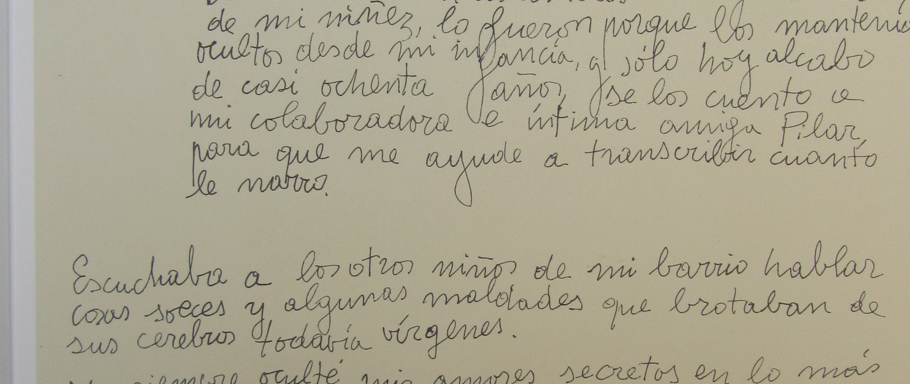 de mi niñez, lo fueron porque los mantenía
ocultos desde mi infancia, y sólo hoy alcabo
de casi ochenta años, se los cuento a
mi colaboradora e íntima amiga Pilar,
para que me ayude a transcribir cuanto
le narro.
Escuchaba a los otros niños de mi barrio hablar
cosas soeces y algunas maldades que brotaban de
sus cerebros todavía vírgenes.
siempre oculté mis amores secretos en lo más